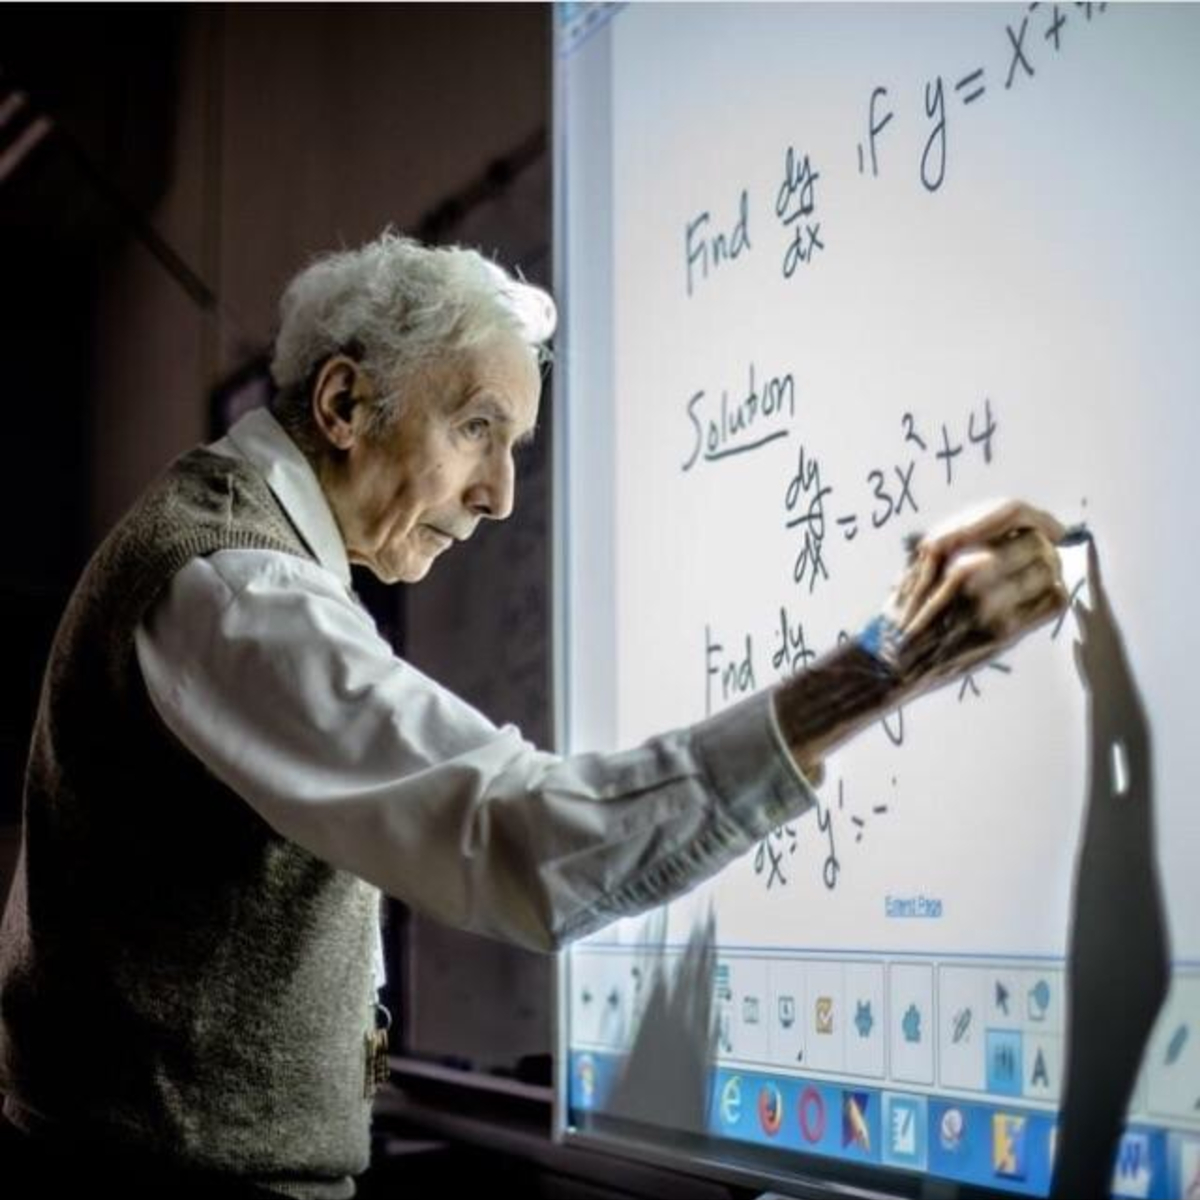 Find dy/dx if y = x
Solution
dy/dx = 3x² + 4
Find dy
y' = -
Extent Page
A
W